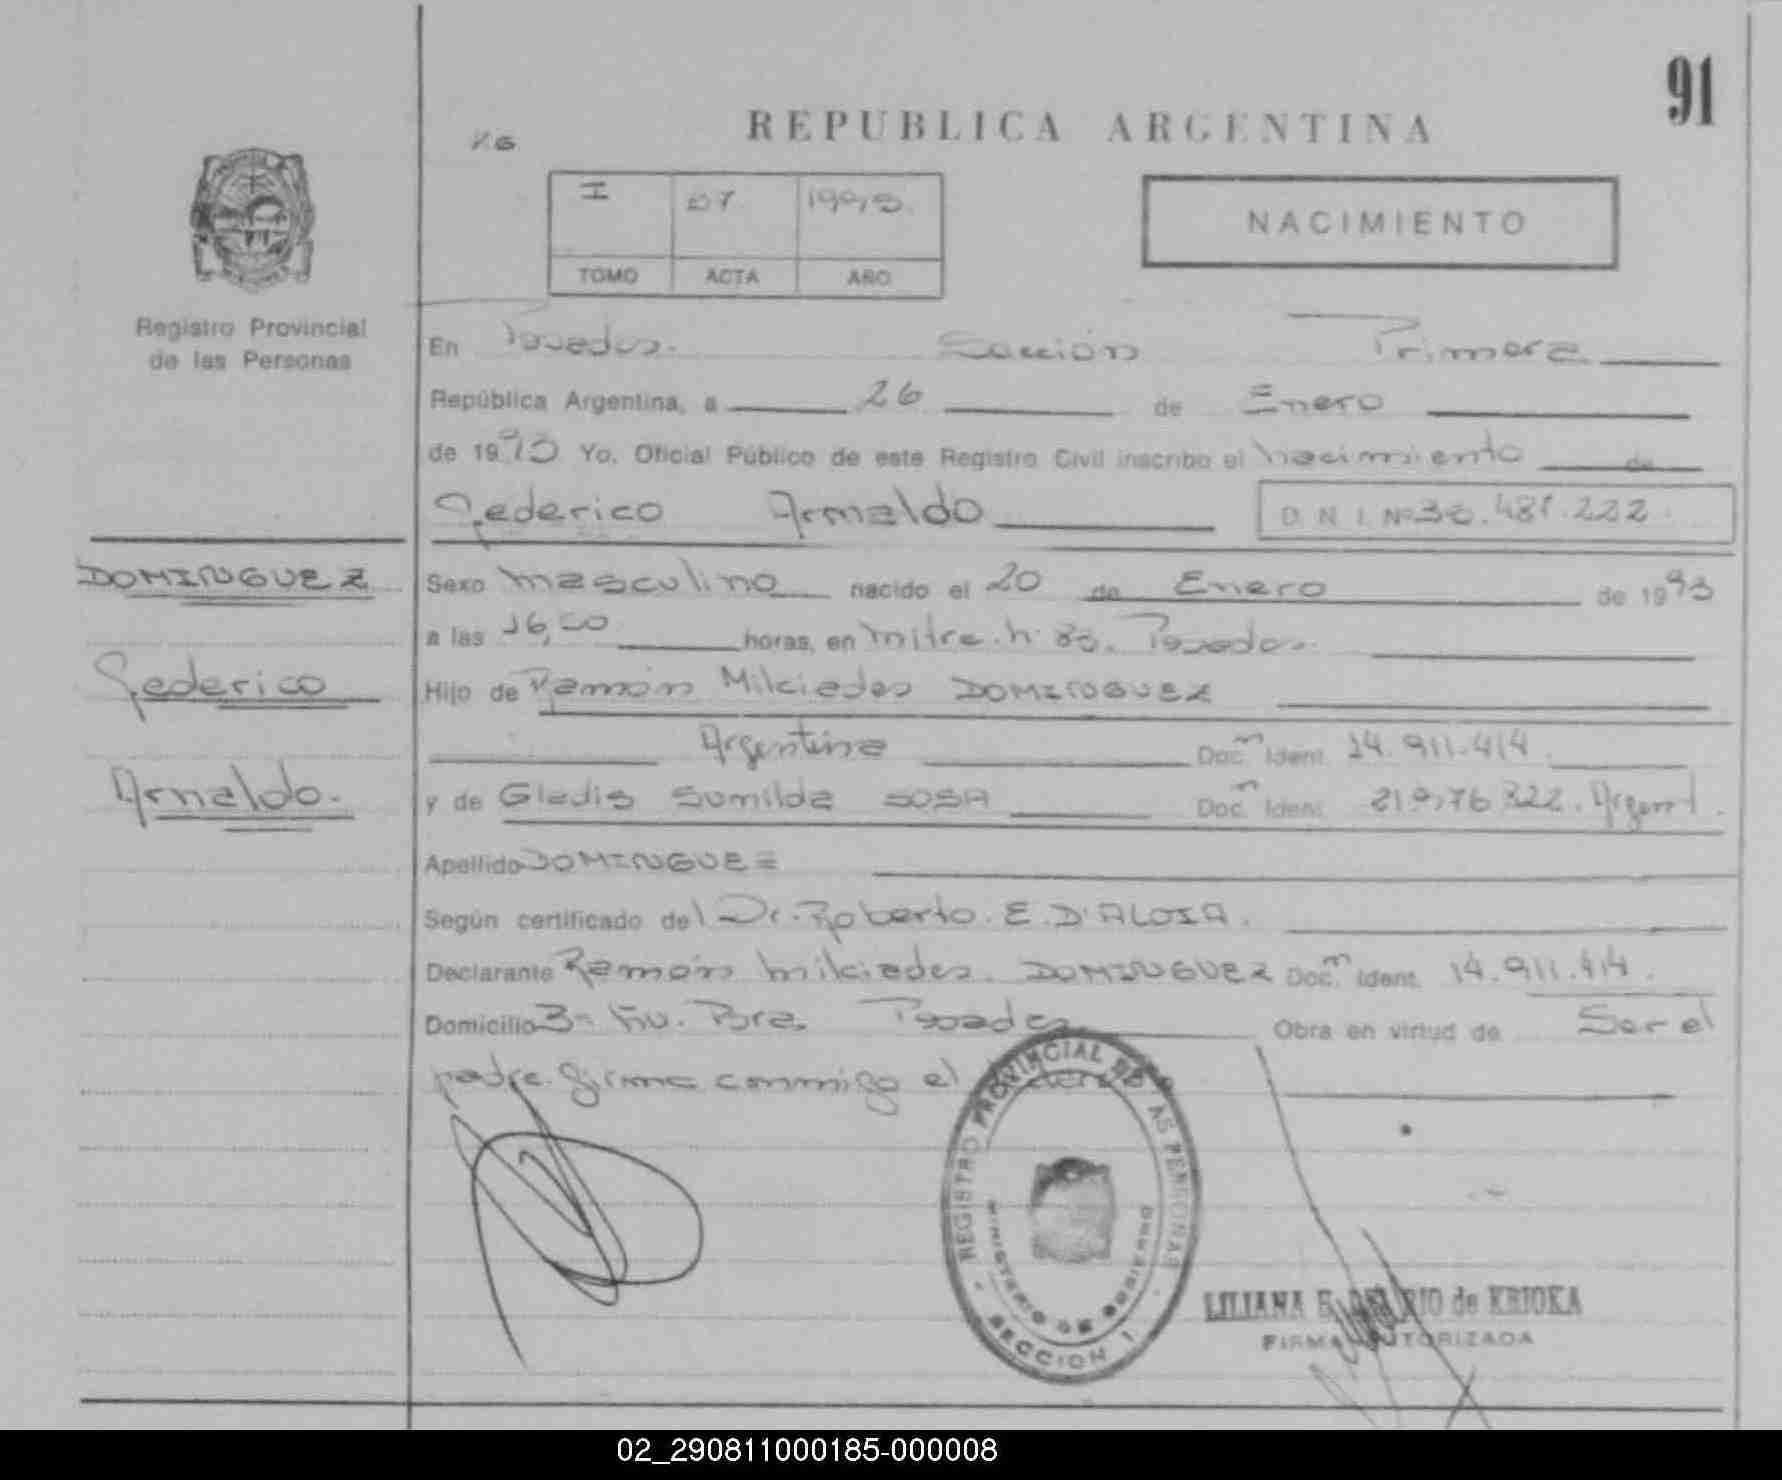 91
REPUBLICA ARGENTINA
I 97 1993.
TOMO ACTA AÑO
NACIMIENTO
Registro Provincial
de las Personas
En Posadas. Sección Primera
República Argentina, a 26 de Enero
de 1993 Yo, Oficial Público de este Registro Civil inscribo el nacimiento de
Federico Arnaldo D N I. Nº 30.481.222.
DOMINGUEZ
Federico
Arnaldo.
Sexo masculino nacido el 20 de Enero de 1993
a las 16,00 horas, en mitre. n. 83. Posadas.
Hijo de Ramón Milciades DOMINGUEZ
Argentina Docm Ident. 14.911.414.
y de Gladis Sunilda SOSA Docm Ident. Argent.
Apellido DOMINGUEZ
Según certificado del Dr. Roberto. E. D'ALOIA.
Declarante Ramón milciades. DOMINGUEZ Docm Ident. 14.911.414.
Domicilio Posadas Obra en virtud de Ser el
padre. firma conmigo el
REGISTRO PROVINCIAL DE LAS PERSONAS
MINISTERIO DE GOBIERNO
SECCION 1
LILIANA E. DEL RIO de KRIOKA
FIRMA AUTORIZADA
02_290811000185-000008